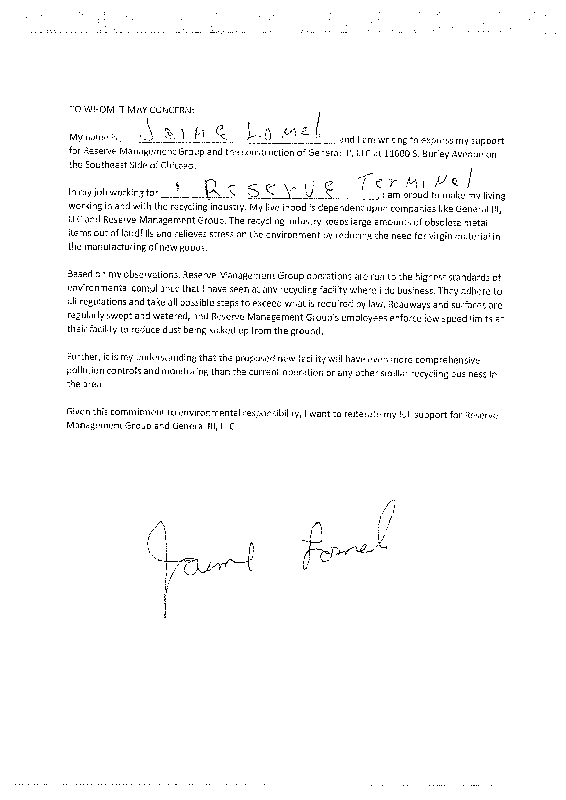 TO WHOM IT MAY CONCERN:
My name is Jaime Lomel and I am writing to express my support
for Reserve Management Group and the construction of General III, LLC at 11600 S. Burley Avenue on
the Southeast Side of Chicago.
In my job working for Reserve Terminel, I am proud to make my living
working in and with the recycling industry. My livelihood is dependent upon companies like General III,
LLC and Reserve Management Group. The recycling industry keeps large amounts of obsolete metal
items out of landfills and relieves stress on the environment by reducing the need for virgin material in
the manufacturing of new goods.
Based on my observations, Reserve Management Group operations are run to the highest standards of
environmental compliance that I have seen at any recycling facility where I do business. They adhere to
all regulations and take all possible steps to exceed what is required by law. Roadways and surfaces are
regularly swept and watered, and Reserve Management Group's employees enforce low speed limits at
their facility to reduce dust being kicked up from the ground.
Further, it is my understanding that the proposed new facility will have even more comprehensive
pollution controls and monitoring than the current operation or any other similar recycling business in
the area.
Given this commitment to environmental responsibility, I want to reiterate my full support for Reserve
Management Group and General III, LLC.
Jaime Lomel